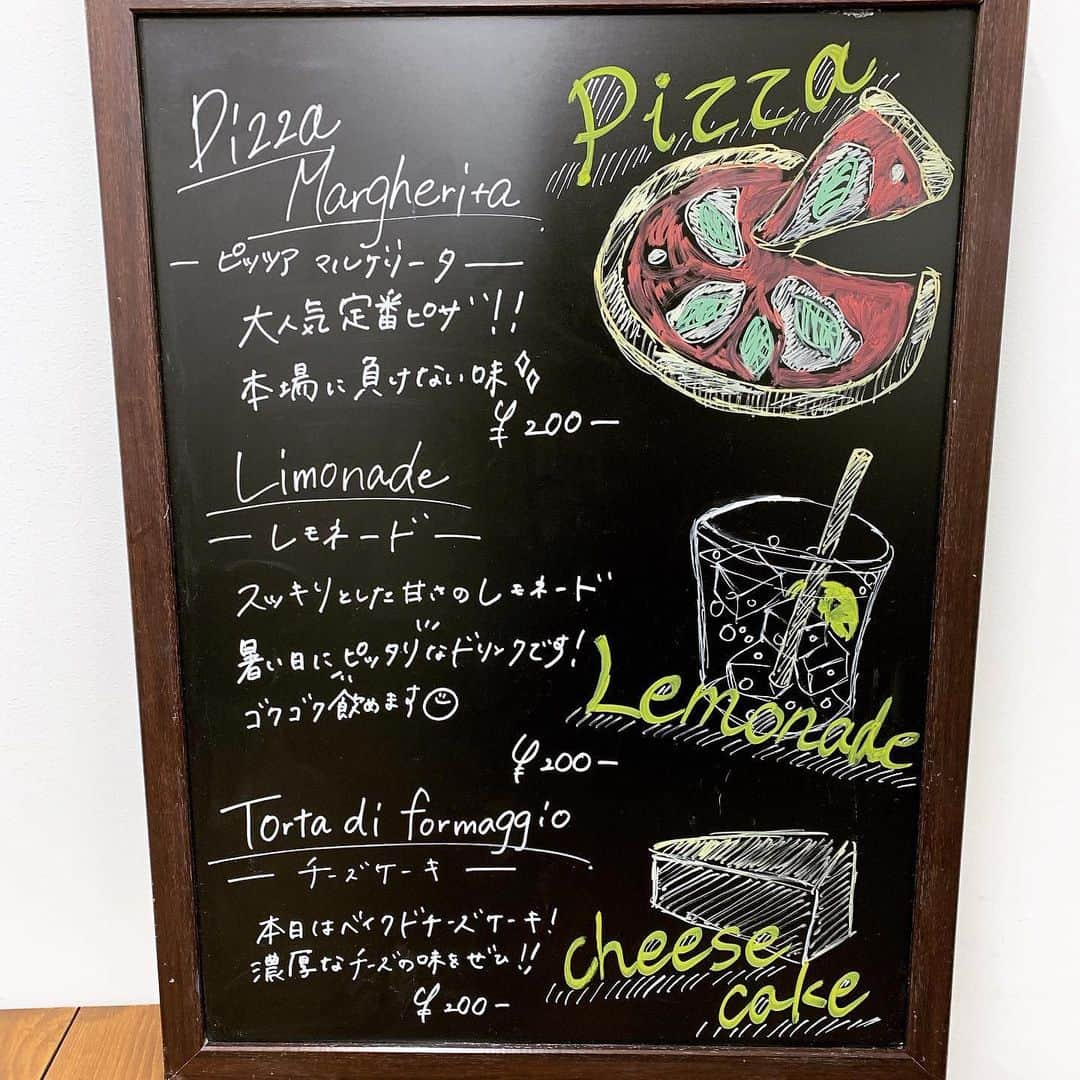 Pizza
Pizza
Margherita
― ピッツァ マルゲリータ ―
大人気定番ピザ!!
本場に負けない味
¥200-
Limonade
― レモネード ―
スッキリとした甘さのレモネード
暑い日にピッタリなドリンクです!
ゴクゴク飲めます
Lemonade
¥200-
Torta di formaggio
― チーズケーキ ―
本日はベイクドチーズケーキ!
濃厚なチーズの味をぜひ!!
¥200-
cheese
cake